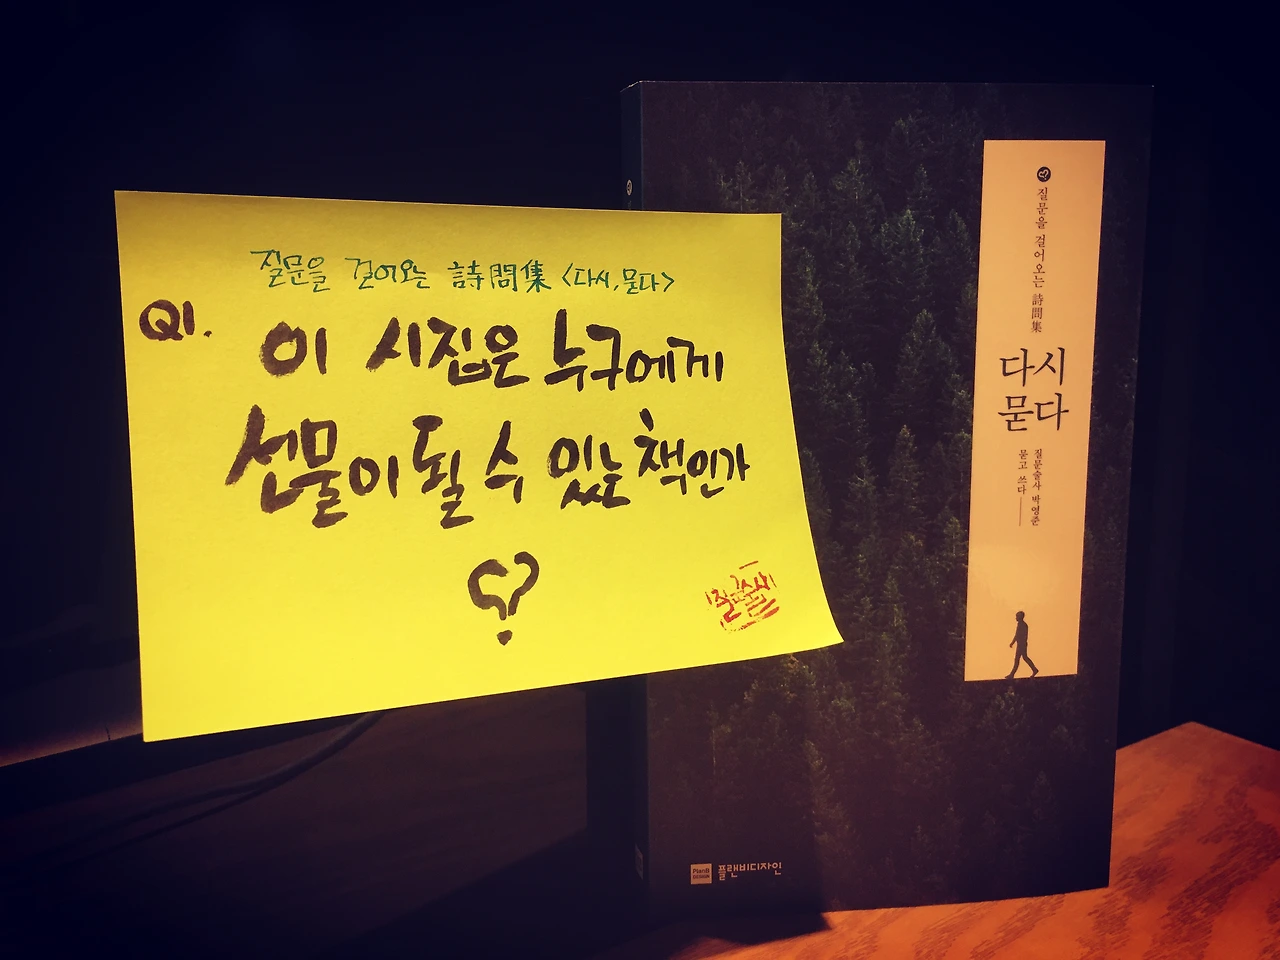 질문을 걸어오는 詩問集 <다시, 묻다>
Q1. 이 시집은 누구에게
선물이 될 수 있는 책인가
?
질문술사
질문을 걸어오는 詩問集
다시
묻다
질문술사 박영준
묻고 쓰다
PlanB
DESIGN
플랜비디자인